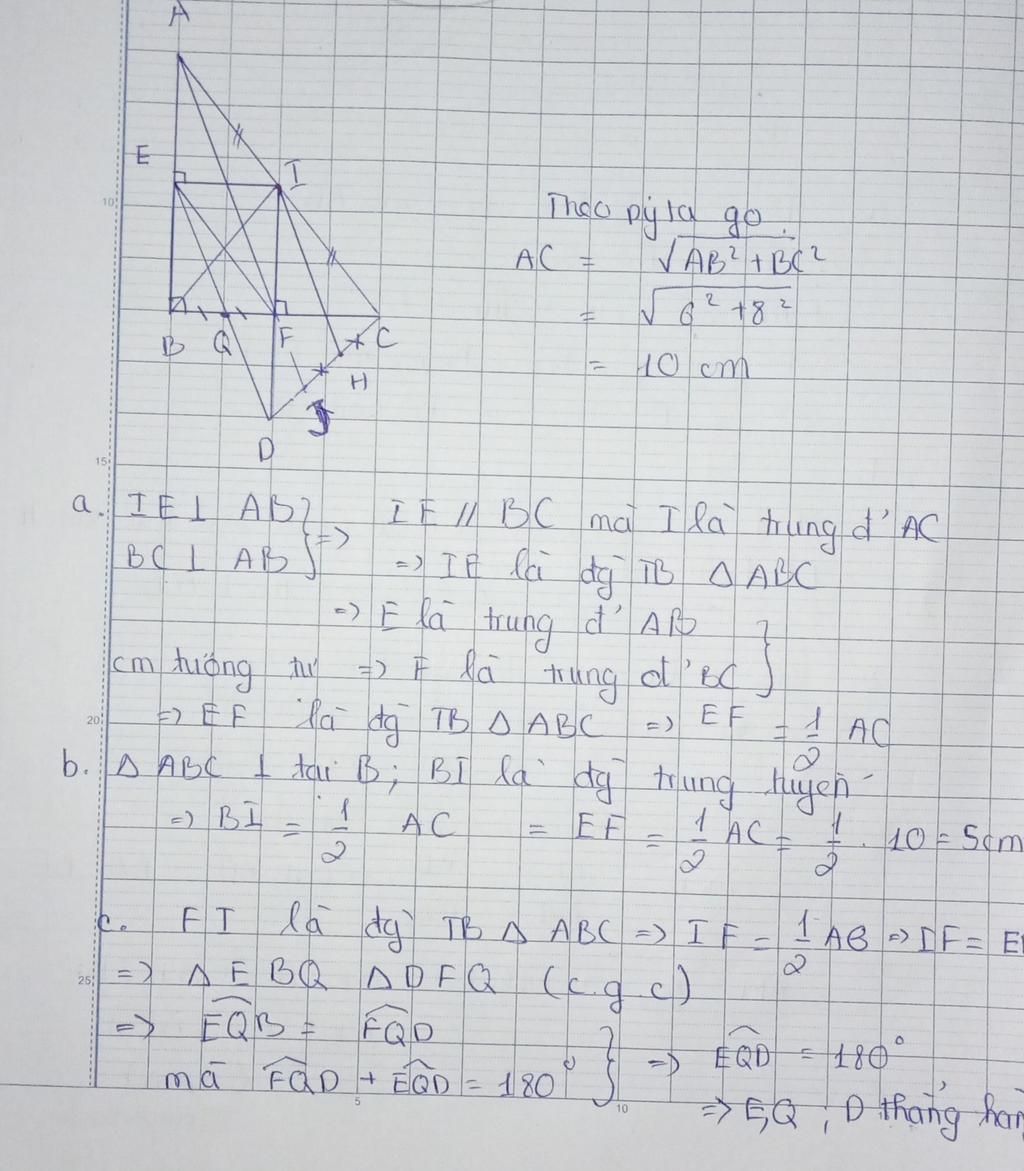 A
E
I
10
B Q F C
H
J
D
15
Theo pyta go.
AC = √AB² + BC²
= √6² + 8²
= 10 cm
a. IE ⊥ AB } => IE // BC mà I là trung đ' AC
BC ⊥ AB
=> IE là đg TB Δ ABC
=> E là trung đ' AB
cm tương tự => F là trung đ' BC }
20
=> EF là đg TB Δ ABC => EF = 1/2 AC
b. Δ ABC ⊥ tại B; BI là đg trung tuyến
=> BI = 1/2 AC = EF = 1/2 AC = 1/2 . 10 = 5cm
c. FI là đg TB Δ ABC => IF = 1/2 AB => IF = E
25
=> Δ EBQ Δ DFQ (c.g.c)
=> EQB = FQD
mà FQD + EQD = 180° } => EQD = 180°
=> E,Q ; D thẳng hàn
5
10